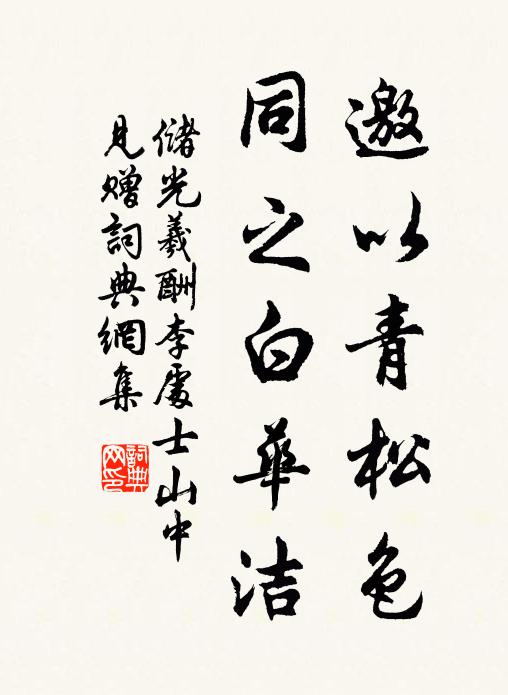 邀以青松色
同之白華洁
儲光羲酬李處士山中
見贈詞典網集
詞典网印